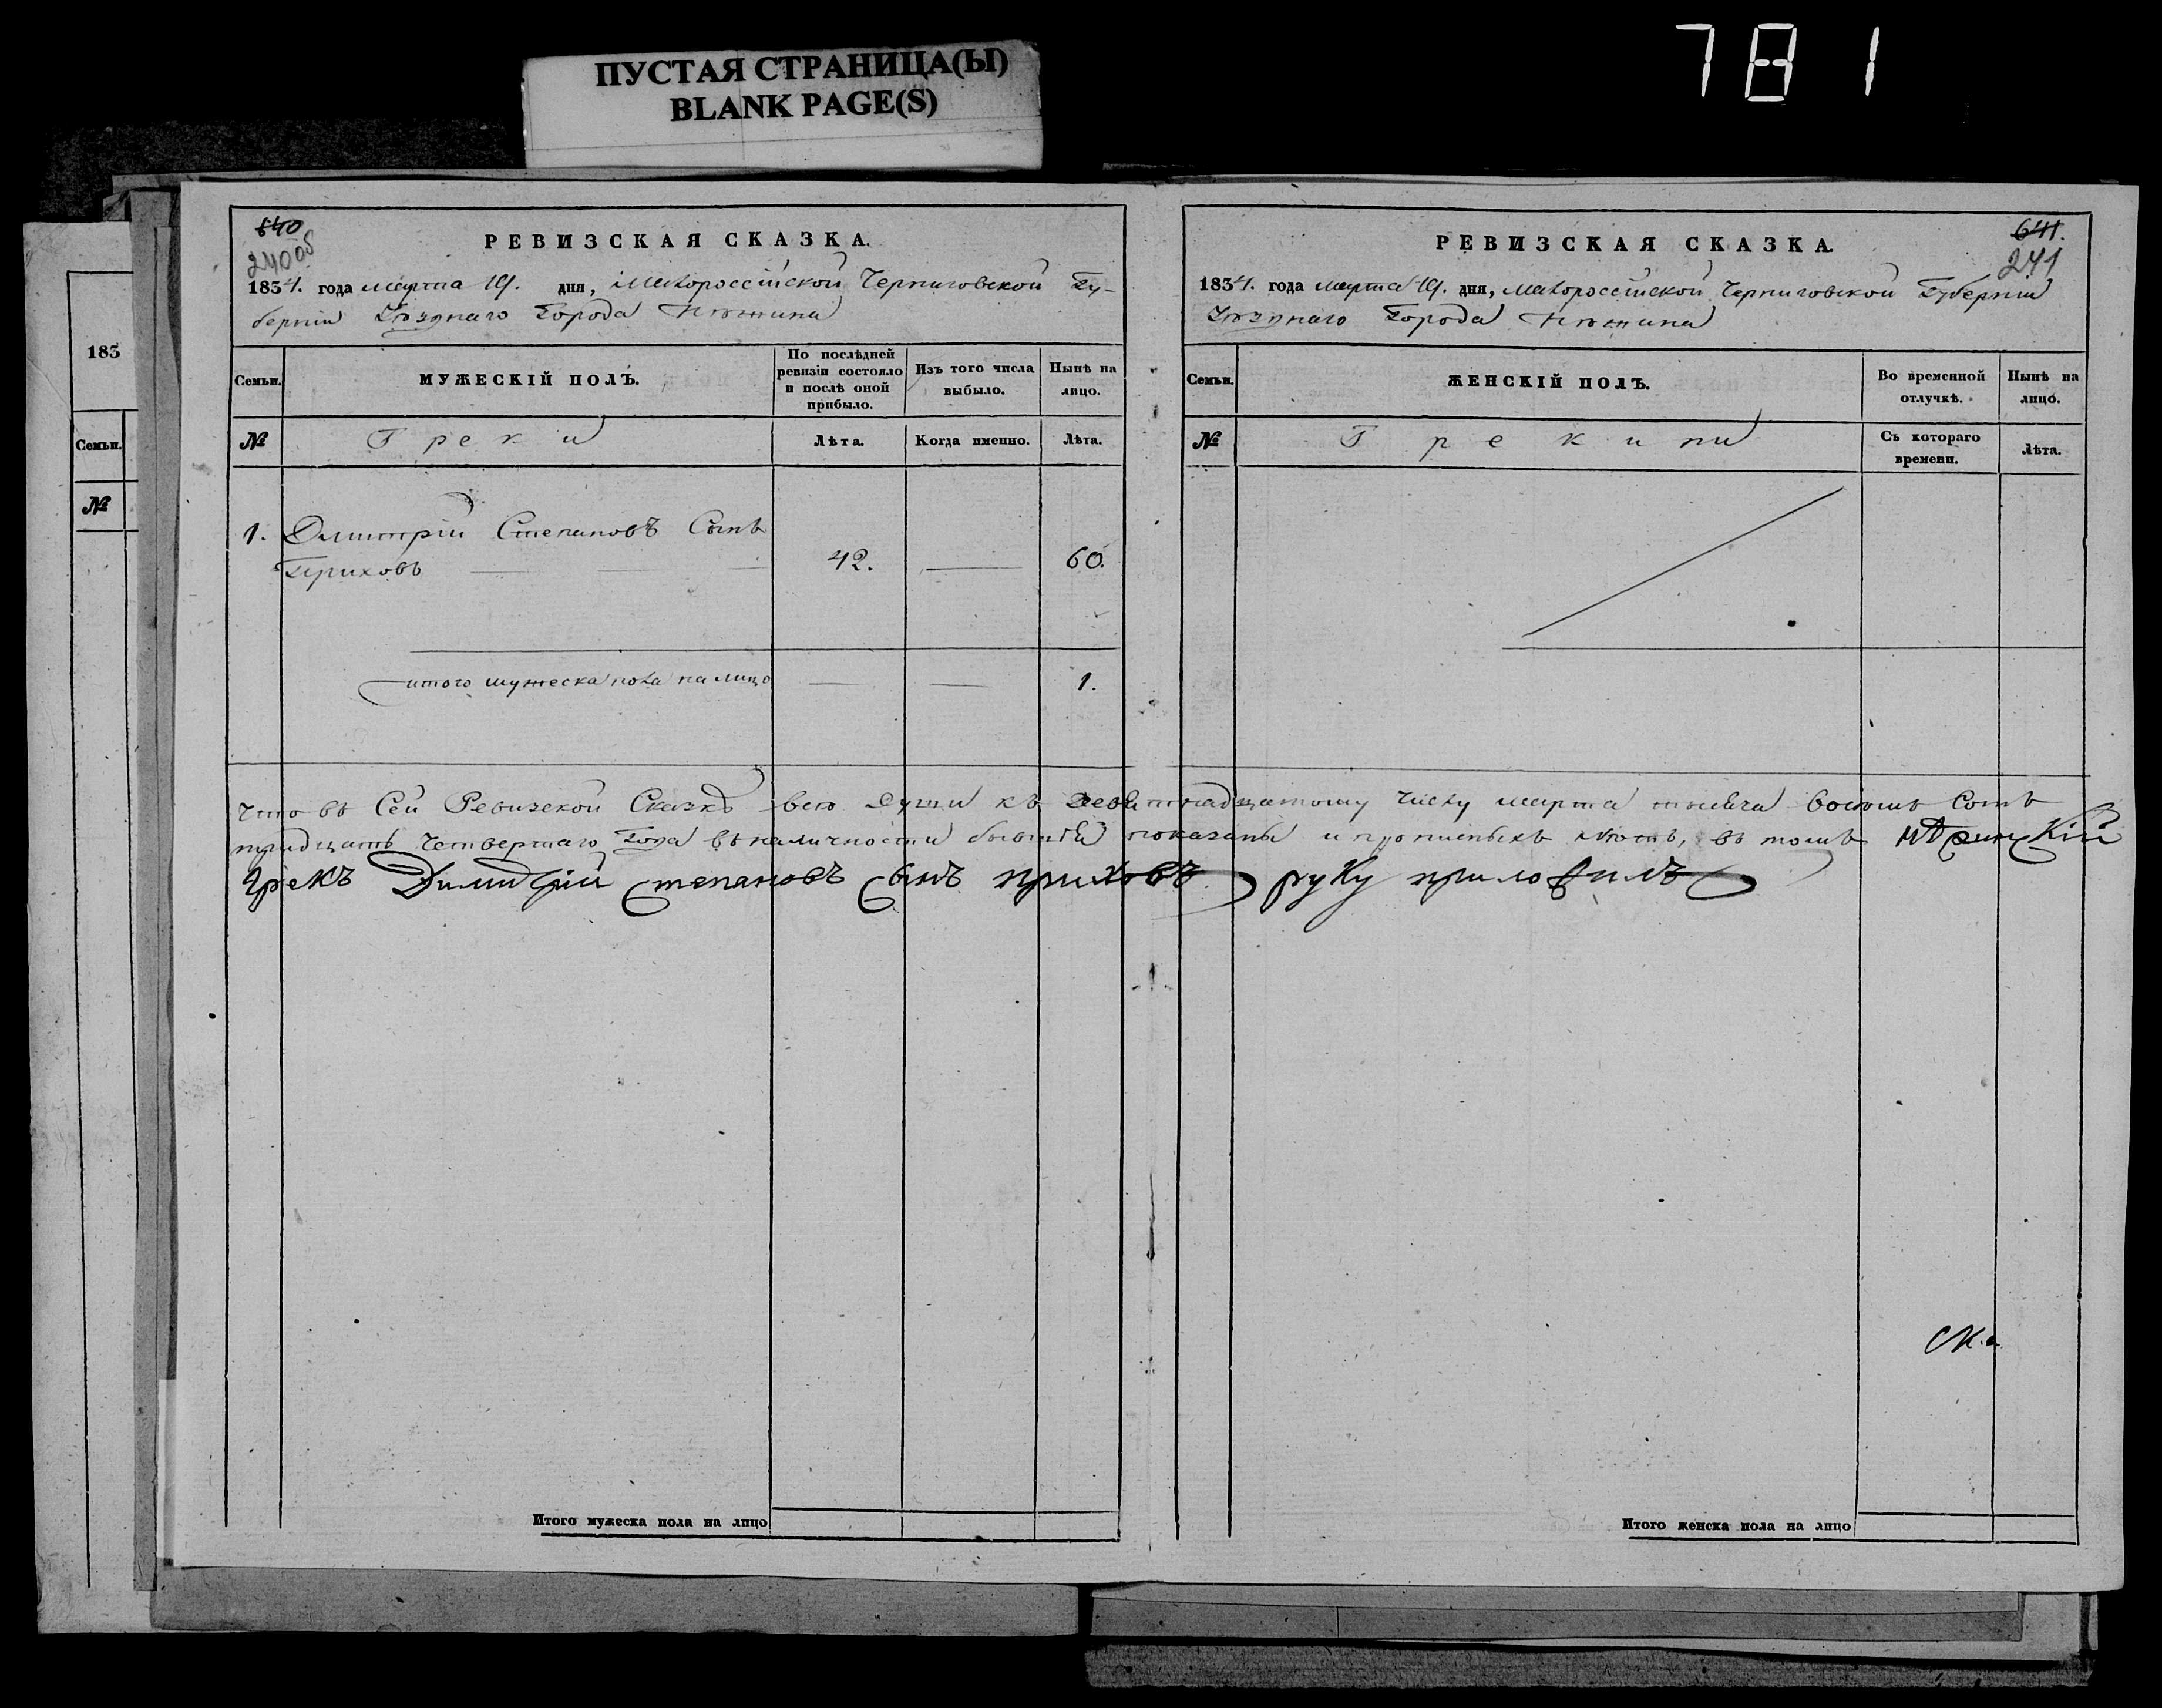 781
ПУСТАЯ СТРАНИЦА(Ы)
BLANK PAGE(S)
183
Семьи.
№
640
240об
РЕВИЗСКАЯ СКАЗКА.
1834. года марта 19. дня, Малороссійской Черниговской Гу-
берніи Уѣзднаго Города Нѣжина
Семьи.
МУЖЕСКІЙ ПОЛЪ.
По послѣдней ревизіи состояло и послѣ оной прибыло.
Изъ того числа выбыло.
Нынѣ на лицо.
№
Греки
Лѣта.
Когда именно.
Лѣта.
1. Дмитрій Степановъ Сынъ
Приховъ 42. 60.
итого мужеска пола на лицо 1.
641.
241
РЕВИЗСКАЯ СКАЗКА.
1834. года марта 19. дня, Малороссійской Черниговской Губерніи
Уѣзднаго Города Нѣжина
Семьи.
ЖЕНСКІЙ ПОЛЪ.
Во временной отлучкѣ.
Нынѣ на лицо.
№
Грекини
Съ котораго времени.
Лѣта.
Что въ Сей Ревизской Сказкѣ всѣ Души къ девятнадцатому числу марта тысяча восемь Сотъ
тридцать Четвертаго Года въ наличности бывшій показаны и прописныхъ нѣтъ, въ томъ нѣжинскій
грекъ Димидрій Степановъ сынъ приховъ руку приложилъ
Итого мужеска пола на лицо
Итого женска пола на лицо